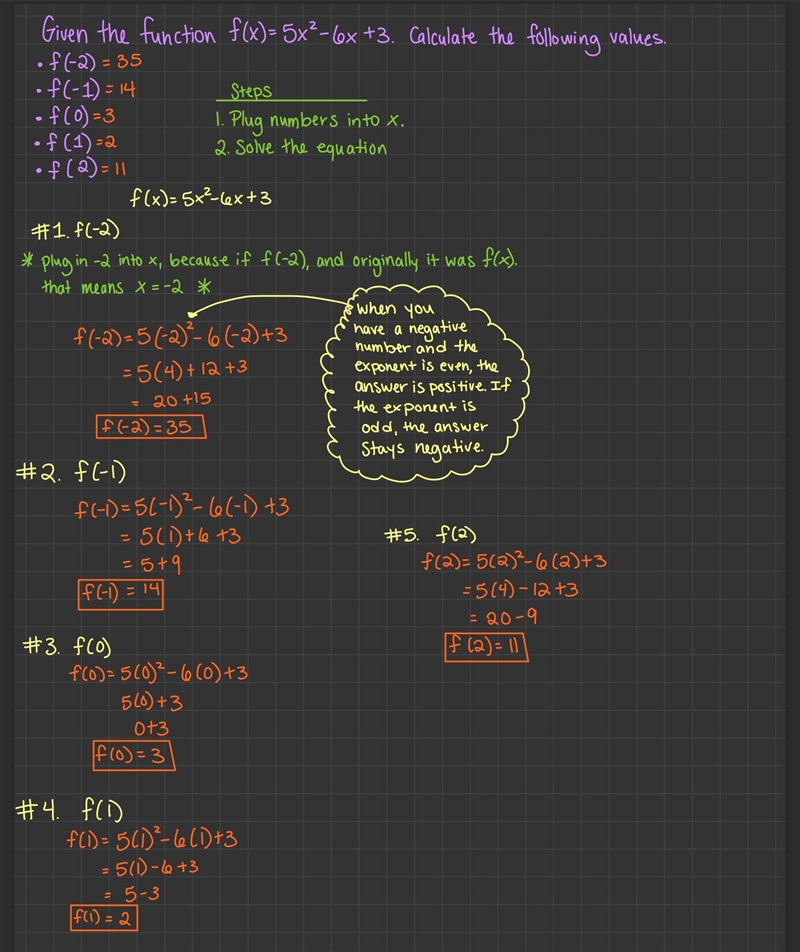 Given the function f(x)= 5x²-6x+3. Calculate the following values.
• f(-2) = 35
• f(-1) = 14
• f(0) =3
• f(1) =2
• f(2) = 11
Steps
1. Plug numbers into x.
2. Solve the equation
f(x)= 5x²-6x+3
#1. f(-2)
* plug in -2 into x, because if f(-2), and originally it was f(x).
that means x = -2 *
f(-2)= 5(-2)² - 6(-2)+3
= 5(4)+ 12 +3
= 20 +15
f(-2) = 35
when you
have a negative
number and the
exponent is even, the
answer is positive. If
the exponent is
odd, the answer
Stays negative.
#2. f(-1)
f(-1) = 5(-1)² - 6(-1) +3
= 5(1)+6 +3
= 5+9
f(-1) = 14
#3. f(0)
f(0)= 5(0)² - 6(0)+3
5(0)+3
0+3
f(0) = 3
#4. f(1)
f(1)= 5(1)²-6(1)+3
= 5(1)-6+3
= 5-3
f(1) = 2
#5. f(2)
f(2)= 5(2)²-6(2)+3
=5(4)-12+3
= 20-9
f(2)= 11